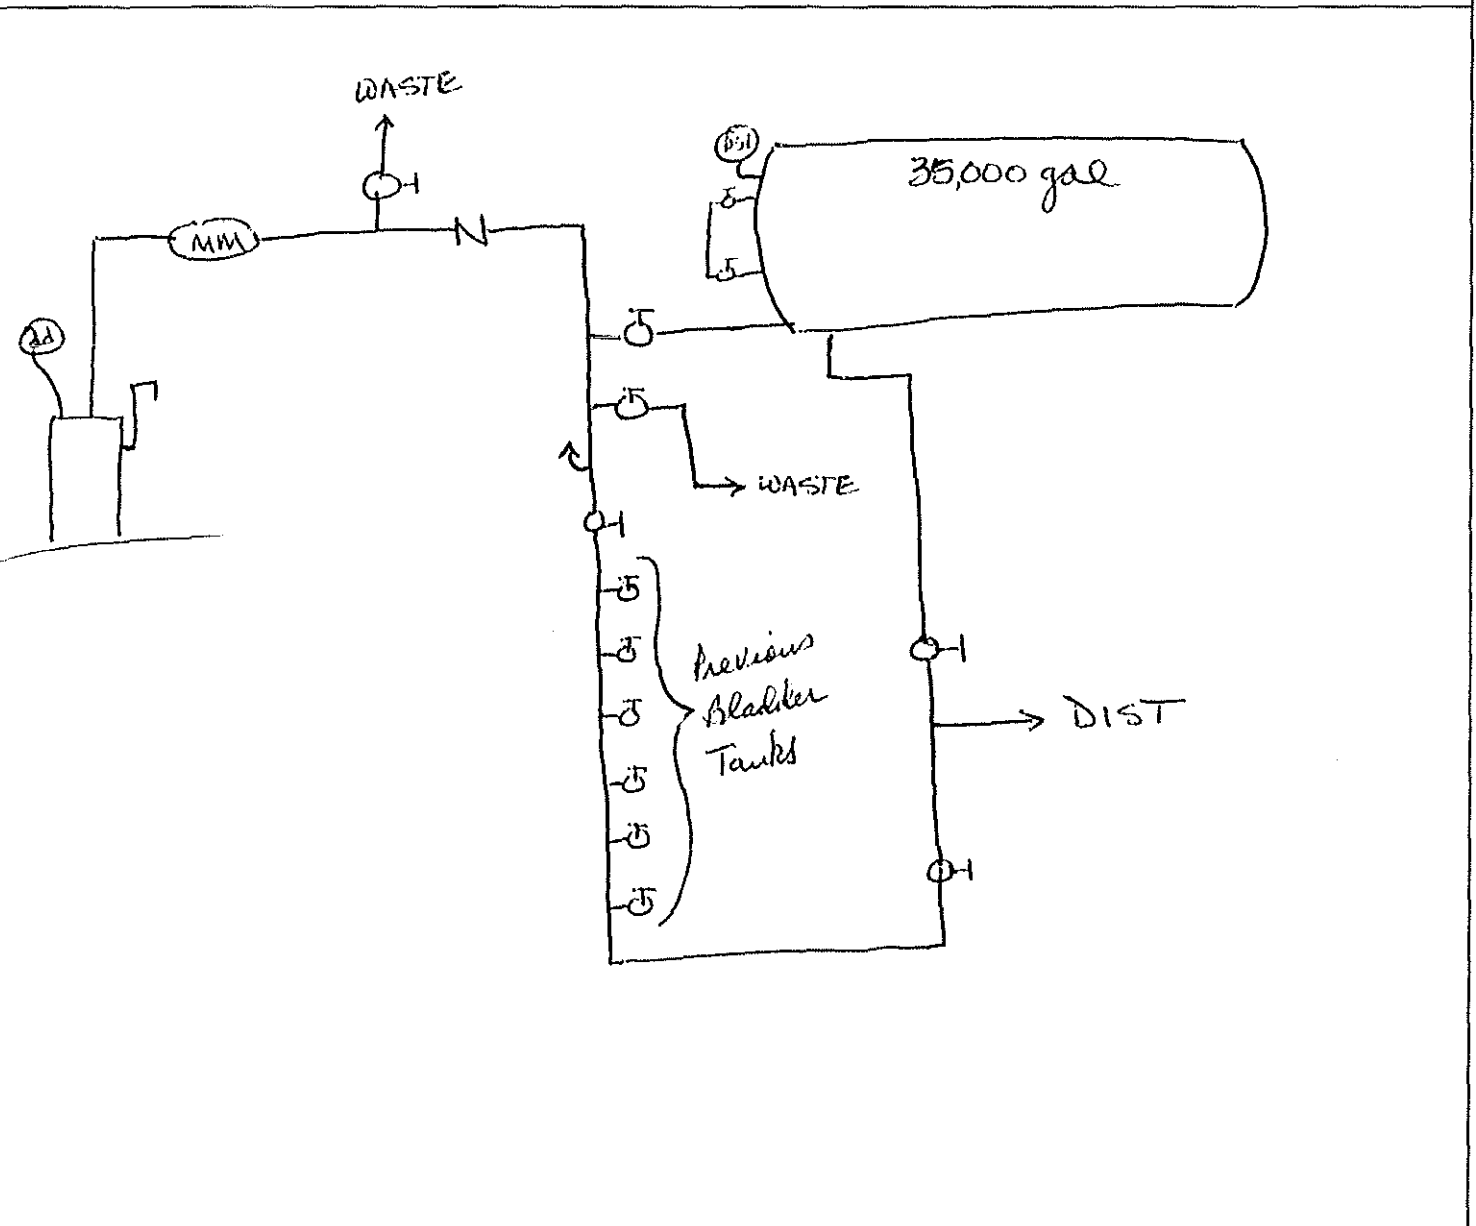 WASTE
psi
35,000 gal
MM
dd
WASTE
Previous
Bladder
Tanks
DIST